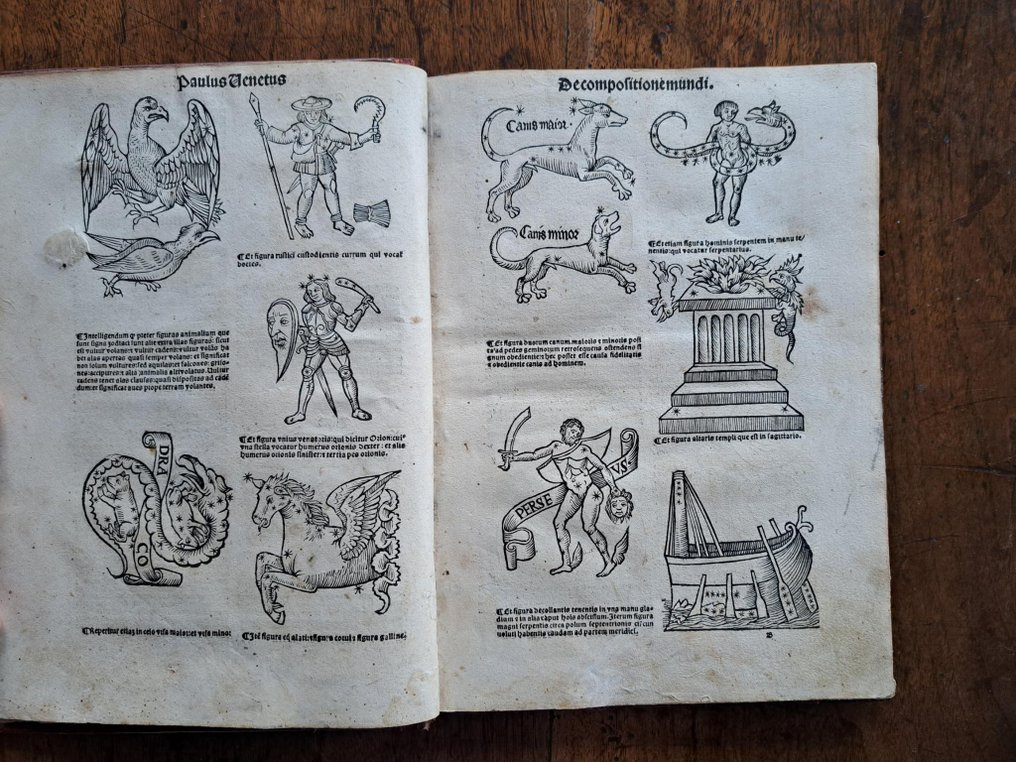 Paulus Uenetus
¶Et figura rustici custodientis currum qui vocat
boetes.
¶Intelligendum ꝙ preter figuras animalium que
sunt signa zodiaci sunt alie extra illas figuras: sicut
est vultur volans: vultur cadens: vultur volās ha
bet alas apertas quasi semper volans: et significat
non solum vultures: sed aquilas: et falcones: grifo-
nes: accipitres: et alia animalia altivolatus. Vultur
cadens tenet alas clausas: quasi dispositas ad cadē
dum: et significat aues prope terram volantes.
¶Et figura vnius venatoris: qui dicitur Orion: cui⁹
vna stella vocatur humerus orionis dexter: et alia
humerus orionis sinister: et tertia pes orionis.
DRA
CO
¶Reperitur etiaz in celo vrsa maior: et vrsa minor
¶Itē figura eq̄ alati: figura corui: figura galline.
De compositione mundi.
Canis maior.
Canis minor
¶Et etiam figura hominis serpentem in manu te-
nentis: qui vocatur serpentarius.
¶Et figura duorum canum maioris et minoris posi
ta ad pedes geminorum retro sequens ostendens si
gnum obedientie: hec poster est causa fidelitatis
et obedientie canis ad hominem.
¶Et figura altaris templi que est in sagittario.
PERSE
VS.
¶Et figura decollantis tenentis in vna manu gla-
dium et in alia caput hois abscissum. Iterum figura
magni serpentis circa polum septentrionis
voluti habentis caudam ad partem meridiei.
B